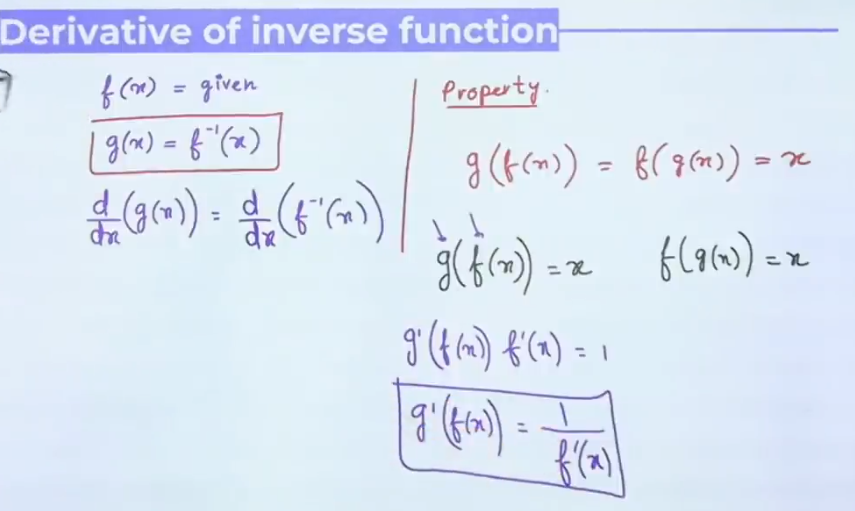 Derivative of inverse function
f(x) = given
g(x) = f⁻¹(x)
d/dx (g(x)) = d/dx (f⁻¹(x))
Property.
g(f(x)) = f(g(x)) = x
g(f(x)) = x f(g(x)) = x
g'(f(x)) f'(x) = 1
g'(f(x)) = 1/f'(x)